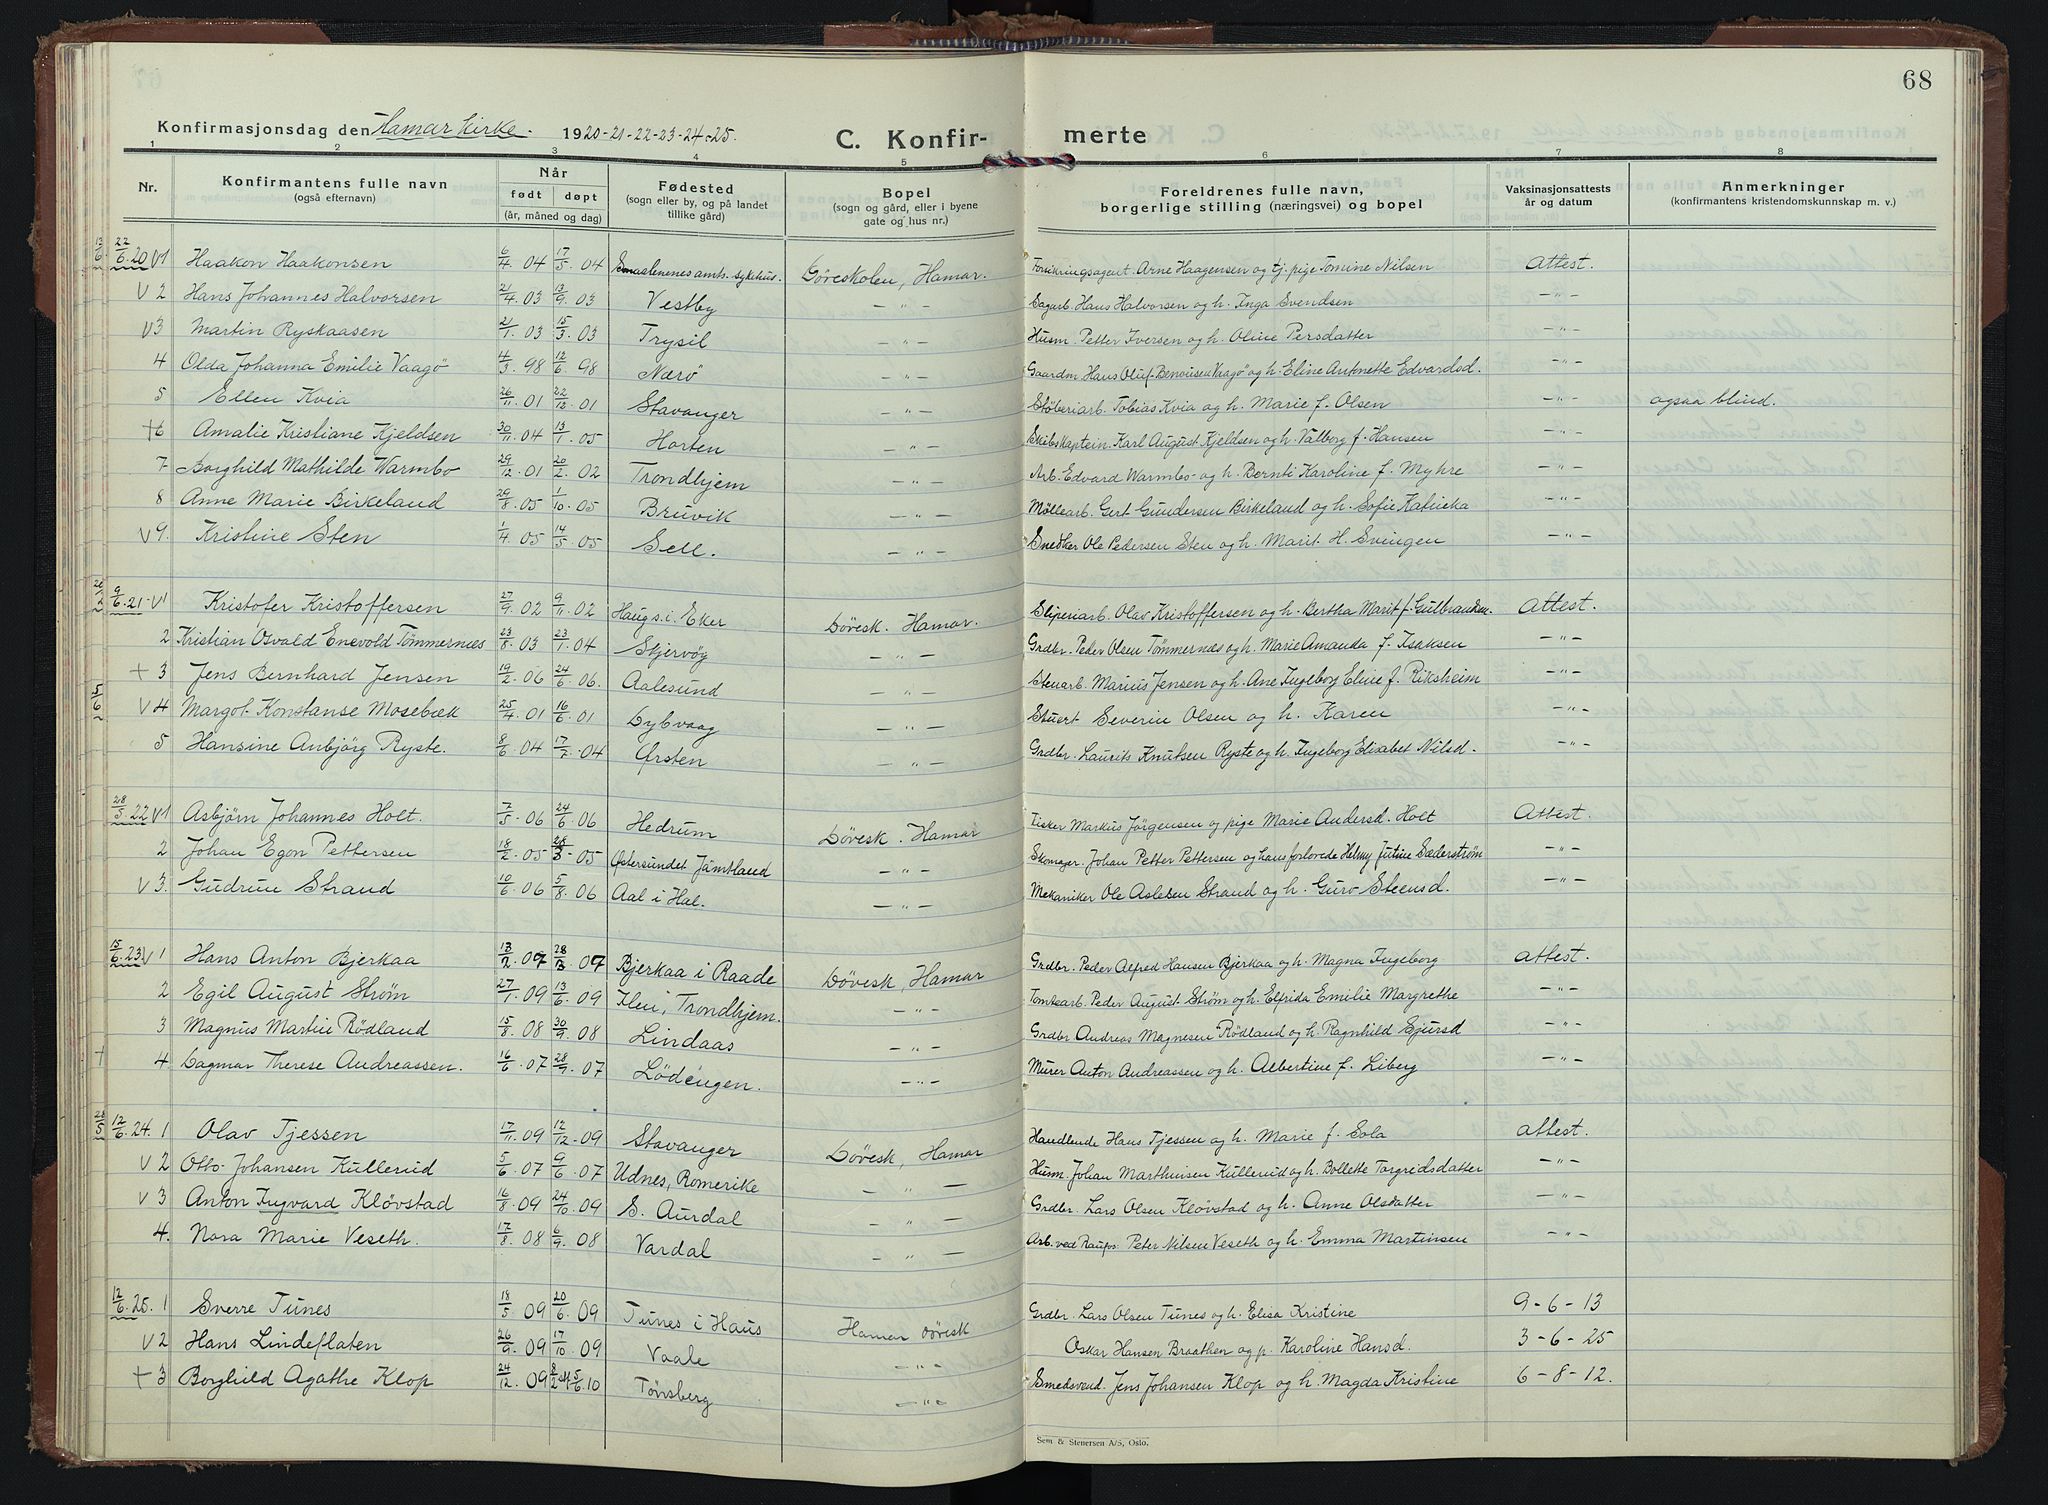 68
Konfirmasjonsdag den Hamar Kirke. 1920-21-22-23-24-25. C. Konfirmerte
1 2 3 4 5 6 7 8
Nr. Konfirmantens fulle navn (også efternavn) Når født døpt (år, måned og dag) Fødested (sogn eller by, og på landet tillike gård) Bopel (sogn og gård, eller i byene gate og hus nr.) Foreldrenes fulle navn, borgerlige stilling (næringsvei) og bopel Vaksinasjonsattests år og datum Anmerkninger (konfirmantens kristendomskunnskap m. v.)
13/6 22/6.20 V1 Haakon Haakonsen 6/4.04 17/5.04 Smaalenenes amts sykehus. Döveskolen, Hamar. Forsikringsagent Arne Haagensen og tj. pige Tomine Nilsen Attest.
V 2 Hans Johannes Halvorsen 21/4.03 13/9.03 Vestby -"- Sagarb. Hans Halvorsen og h. Inga Svendsen -"-
V3 Martin Ryskaasen 21/1.03 15/3.03 Trysil -"- Husm. Petter Iversen og h. Oline Persdatter -"-
4 Olda Johanna Emilie Vaagö 4/3.98 12/6.98 Nærö -"- Gaardm. Hans Oluf Benoisen Vaagö og h. Eline Antonette Edvardsd. -"-
5 Ellen Kvia 26/11.01 22/12.01 Stavanger -"- Stöberiarb. Tobias Kvia og h. Marie f. Olsen -"- ogsaa blind.
+6 Amalie Kristiane Kjeldsen 30/11.04 13/1.05 Horten -"- Skibskaptein. Karl August Kjeldsen og h. Valborg f. Hansen -"-
7 Borghild Mathilde Warmbo 29/12.01 20/2.02 Trondhjem -"- Arb. Edvard Warmbo og h. Bernti Karoline f. Myhre -"-
8 Anne Marie Birkeland 29/8.05 1/10.05 Bruvik -"- Möllearb. Gert Gundersen Birkeland og h. Sofie Katrieka -"-
V9. Kristine Sten 1/4.05 14/5.05 Sell. -"- Snedker Ole Pedersen Sten og h. Marit H. Svingen -"-
9/6.21 V1 Kristofer Kristoffersen 27/9.02 9/11.02 Haug s. i. Eker Dövesk. Hamar. Sliperiarb. Olav Kristoffersen og h. Bertha Marit f. Gulbrandsen Attest.
2 Kristian Osvald Enevold Tömmernæs 23/8.03 23/1.04 Skjervög -"- Grdbr. Peder Olsen Tömmernæs og h. Marie Amanda f. Isaksen -"-
+ 3 Jens Bernhard Jensen 19/2.06 24/6.06. Aalesund -"- Stenarb. Marius Jensen og h. Ane Ingeborg Eline f. Riksheim -"-
5/6 V4 Margot Konstanse Mosebæk 25/4.01 16/6.01 Dybvaag -"- Stuert Severin Olsen og h. Karen -"-
5 Hansine Anbjörg Ryste. 8/6.04 17/7.04 Ørsten -"- Grdbr. Laurits Knutsen Ryste og h. Ingeborg Elisabet Nilsd. -"-
28/5.22 V1 Asbjörn Johannes Holt. 7/5.06 24/6.06 Hedrum Dövesk. Hamar Fisker Markus Jörgensen og pige Marie Andersd. Holt Attest.
2 Johan Egon Pettersen 18/2.05 28/3.05 Östersundet Jämtland -"- Skomager. Johan Petter Pettersen og hans forlovede Helmy Jutine Sæderström -"-
V3. Gudrun Strand 10/6.06 5/8.06 Aal i Hal. -"- Mekaniker Ole Aslesen Strand og h. Guro Steensd. -"-
15/6.23 V1 Hans Anton Bjerkaa 13/2.07 28/3.07 Bjerkaa i Raade Dövesk, Hamar Grdbr. Peder Alfred Hansen Bjerkaa og h. Magna Ingeborg attest.
2 Egil August Strøm 27/1.09 13/6.09 Ilen, Trondhjem. -"- Tomtearb. Peder August Strøm og h. Elfrida Emilie Margrethe -"-
3 Magnus Martin Rödland 15/8.08 30/9.08 Lindaas -"- Grdbr Andreas Magnesen Rödland og h. Ragnhild Sjursd -"-
+ 4 Dagmar Therese Andreassen. 16/6.07 28/9.07 Lödengen. -"- Murer Anton Andreassen og h. Albertine f. Liberg -"-
28/5 12/6.24. 1 Olav Tjessen 17/11.09 12/12.09 Stavanger Dövesk, Hamar Handlende Hans Tjessen og h. Marie f. Sola attest.
V 2 Otto Johansen Kullerud 5/6.07 9/6.07 Udnes, Romerike -"- Husm. Johan Marthinsen Kullerud og h. Bollette Torgeidsdatter -"-
V 3 Anton Ingvard Klövstad 16/8.09 24/10.09 S. Aurdal -"- Grdbr. Lars Olsen Klövstad og h. Anne Olsdatter -"-
4. Nora Marie Veseth. 17/8.08 6/9.08 Vardal -"- Arb. ved Raufos. Peter Nilsen Veseth og h. Emma Martinsen -"-
12/6.25. 1 Sverre Tunes 18/5.09 20/6.09 Tunes i Haus Hamar dövesk Grdbr. Lars Olsen Tunes og h. Elisa Kristine 9-6-13
V2 Hans Lindeflaten 26/9.09 17/10.09 Vaale -"- Oskar Hansen Braathen og p. Karoline Hansd. 3-6-25
+ 3 Borghild Agathe Klop 24/12.09 8/2 5/6.10 Tønsberg -"- Smedsvend. Jens Johansen Klop og h. Magda Kristine 6-8-12.
Sem & Stenersen A/S, Oslo.